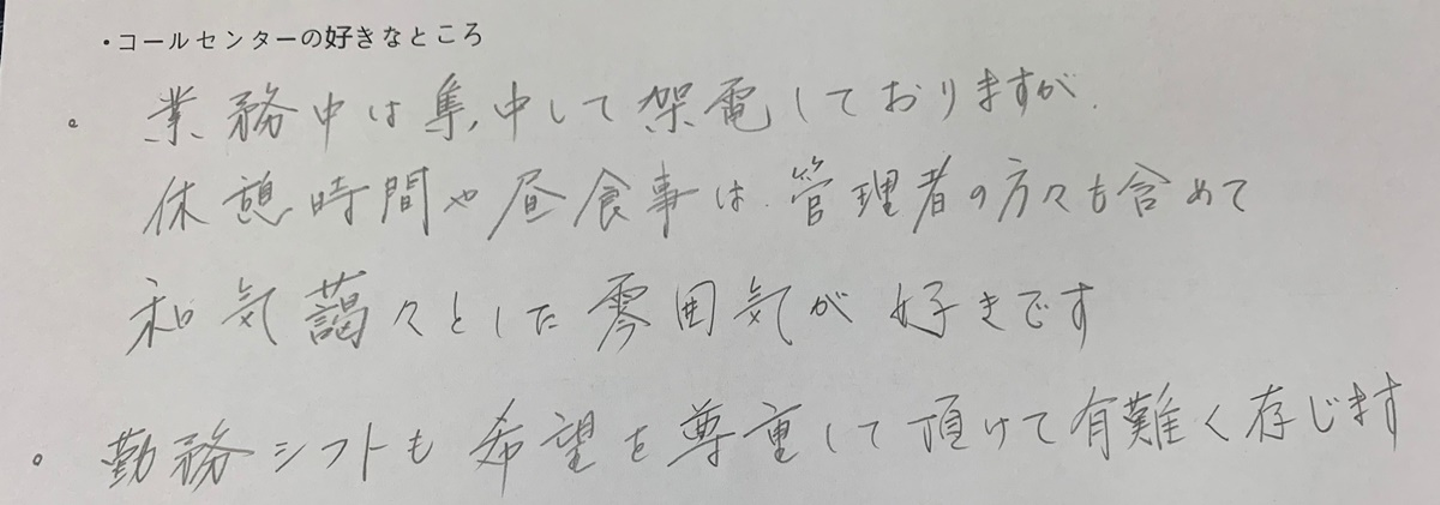 ・コールセンターの好きなところ
。業務中は集中して架電しておりますが、
休憩時間や昼食事は、管理者の方々も含めて
和気藹々とした雰囲気が好きです
。勤務シフトも希望を尊重して頂けて有難く存じます